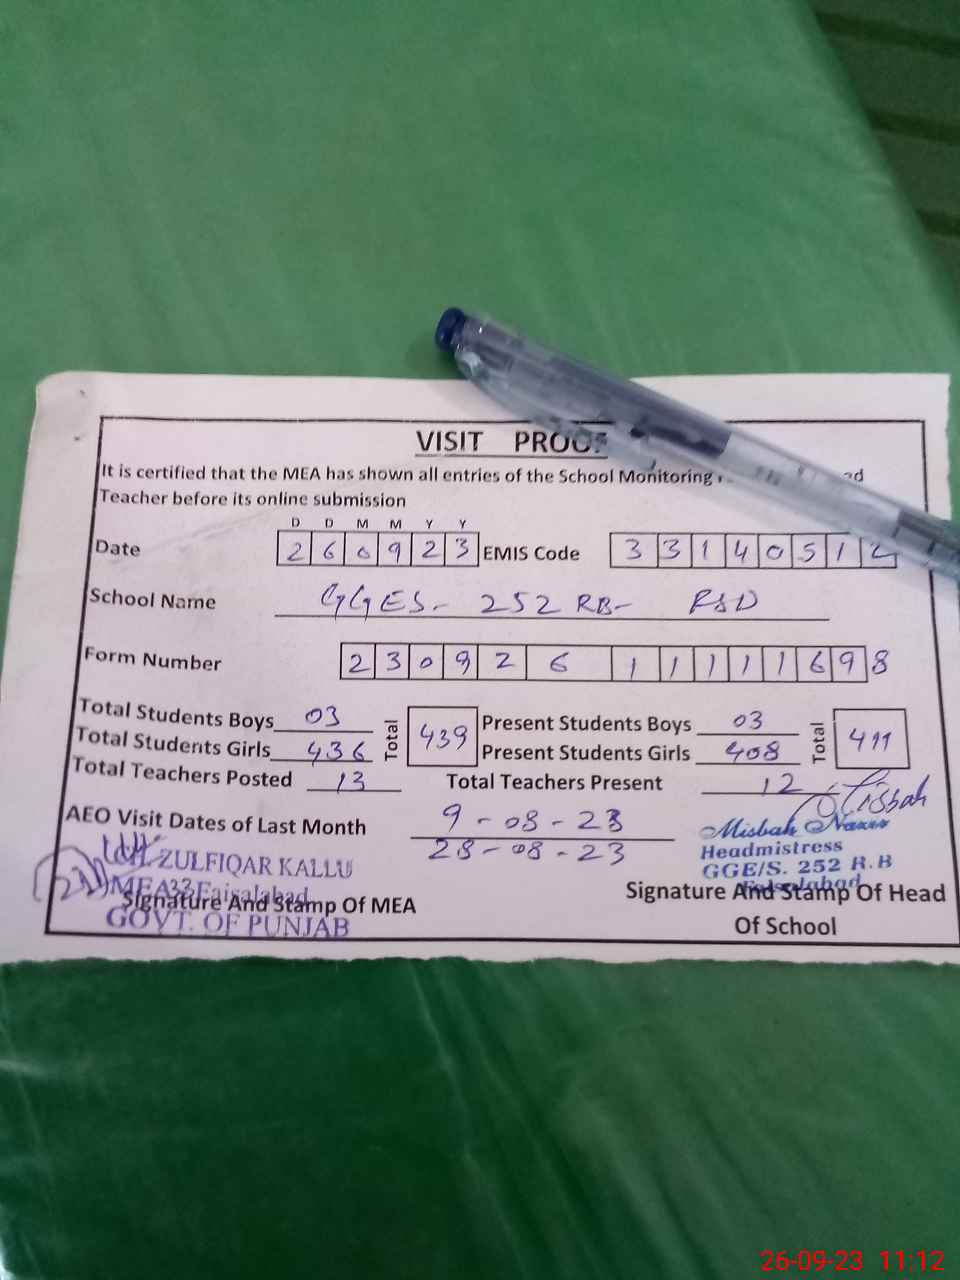 VISIT PROOF
It is certified that the MEA has shown all entries of the School Monitoring
Teacher before its online submission
D D M M Y Y
Date 2 6 0 9 2 3 EMIS Code 3 3 1 4 0 5 1 2
School Name GGES- 252 RB- FSD
Form Number 2 3 0 9 2 6 1 1 1 1 1 6 9 8
Total Students Boys 03 Total 439 Present Students Boys 03 Total 411
Total Students Girls 436 Present Students Girls 408
Total Teachers Posted 13 Total Teachers Present 12
Misbah
AEO Visit Dates of Last Month 9-08-23
28-08-23
ZULFIQAR KALLU
MEA 33 Faisalabad
GOVT. OF PUNJAB
Signature And Stamp Of MEA
Misbah Nazir
Headmistress
GGE/S. 252 R.B
Faisalabad
Signature And Stamp Of Head
Of School
26-09-23 11:12